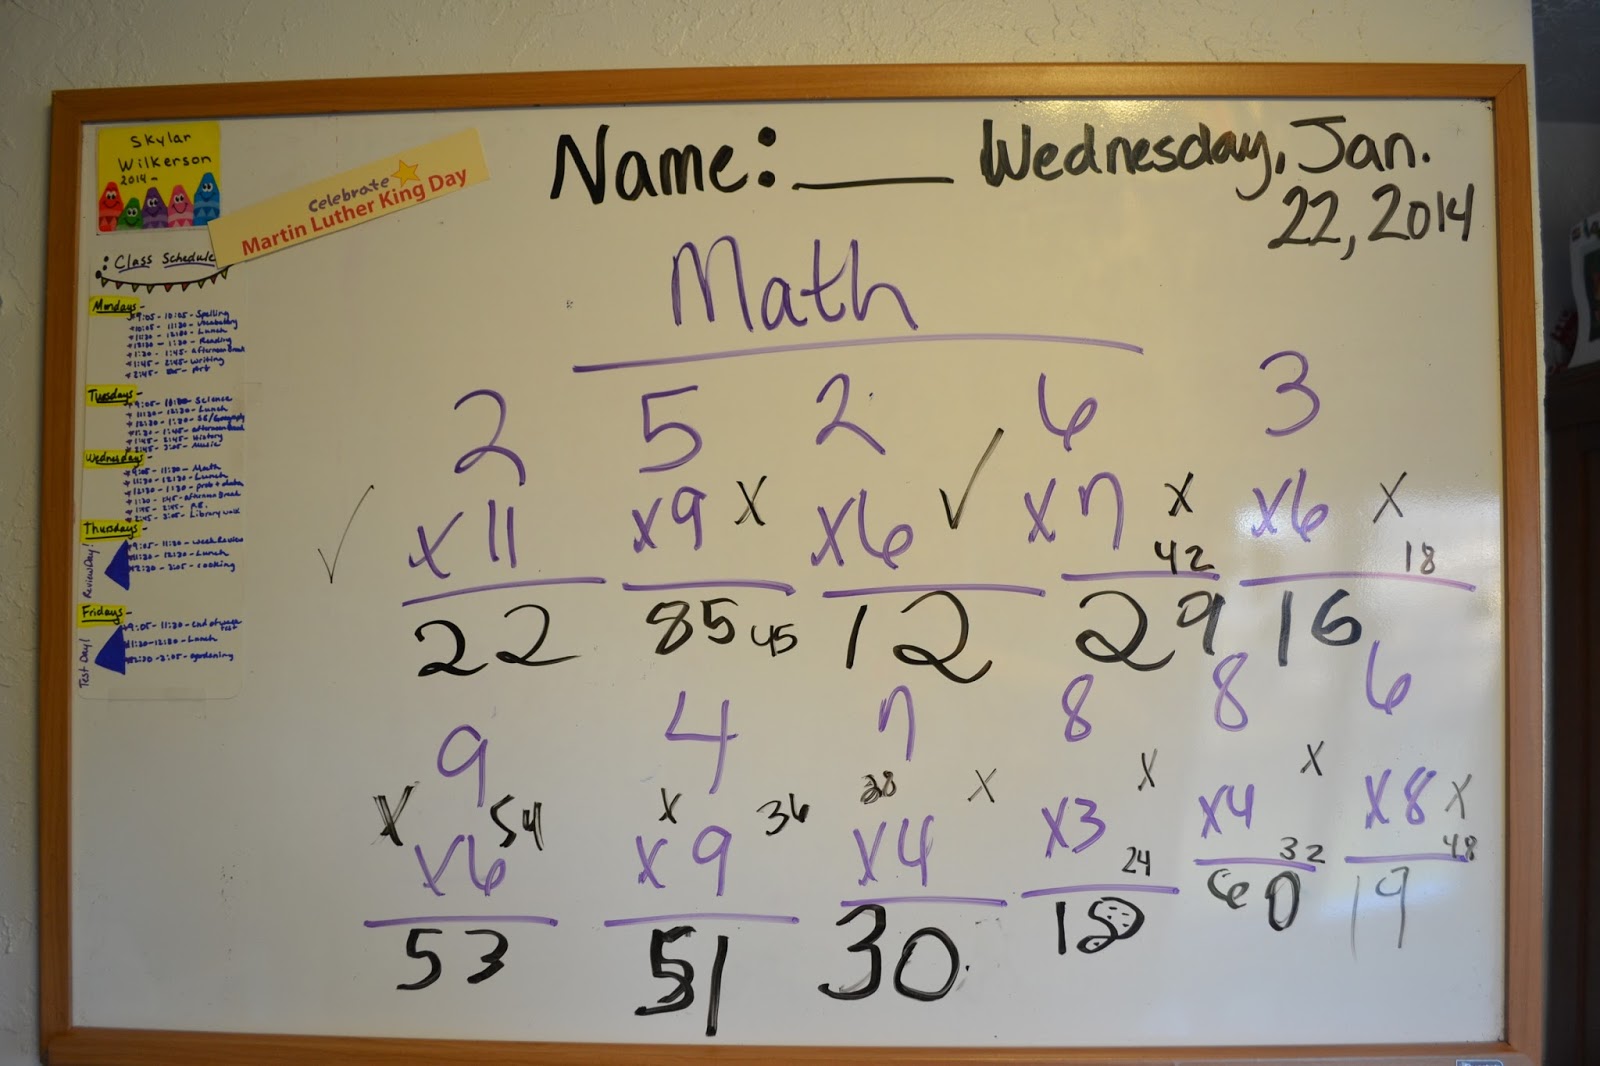 Skylar
Wilkerson
2014~
Celebrate
Martin Luther King Day
Name: ____ Wednesday, Jan.
22, 2014
: Class Schedule
Mondays-
9:05-10:05-Spelling
10:05-11:30-Vocabulary
11:30-12:30-Lunch
12:30-1:30-Reading
1:30-1:45-afternoon Break
1:45-2:45-writing
Tuesdays-
Science
11:30-12:30-Lunch
1:30-1:45-afternoon Break
1:45-2:45-History
2:45-3:05-Music
Wednesdays-
9:05-11:30-Math
11:30-12:30-Lunch
1:30-1:45-afternoon Break
1:45-2:45-P.E.
2:45-3:05-Library walk
Thursdays-
9:05-11:30-week Review
11:30-12:30-Lunch
12:30-3:05-cooking
Review Day!
Fridays-
9:05-11:30-End of week
Test
11:30-12:30-Lunch
12:30-3:05-gardening
Test Day!
Math
2 5 2 6 3
✓ x11 x9 x x6 ✓ x7 x x6 x
42 18
22 85 45 12 29 16
9 4 7 8 8 6
x 54 x 36 28 x x x
x6 x9 x4 x3 x4 x8 x
24 32 48
53 51 30 18 60 19